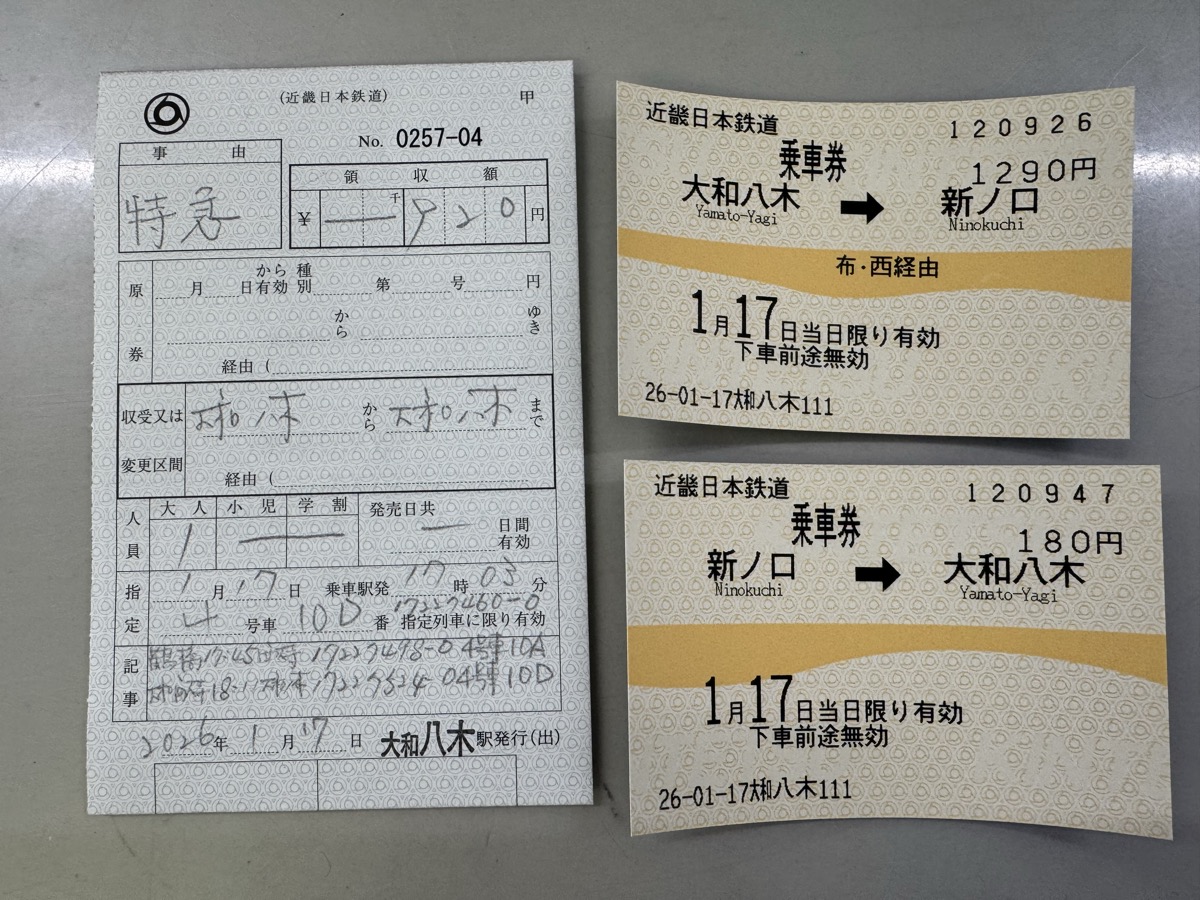 (近畿日本鉄道)
甲
No. 0257-04
事由
特急
領収額
¥ ― 千 920 円
原券
月 日から有効 種別 第 号 円
から ゆき
経由 (
収受又は変更区間
大和八木 から 大和八木 まで
経由 (
人員
大人 小児 学割
1 ―
発売日共 ― 日間有効
指定
1月17日 乗車駅発 17時03分
4号車 10D番 指定列車に限り有効
17227460-0
記事
鶴橋17:45 17227498-0 04号車10A
18-11 17227524 04号車10D
2026年1月17日 大和八木駅発行(出)
近畿日本鉄道
120926
乗車券
1290円
大和八木 ➡ 新ノ口
Yamato-Yagi Ninokuchi
布・西経由
1月17日当日限り有効
下車前途無効
26-01-17大和八木111
近畿日本鉄道
120947
乗車券
180円
新ノ口 ➡ 大和八木
Ninokuchi Yamato-Yagi
1月17日当日限り有効
下車前途無効
26-01-17大和八木111